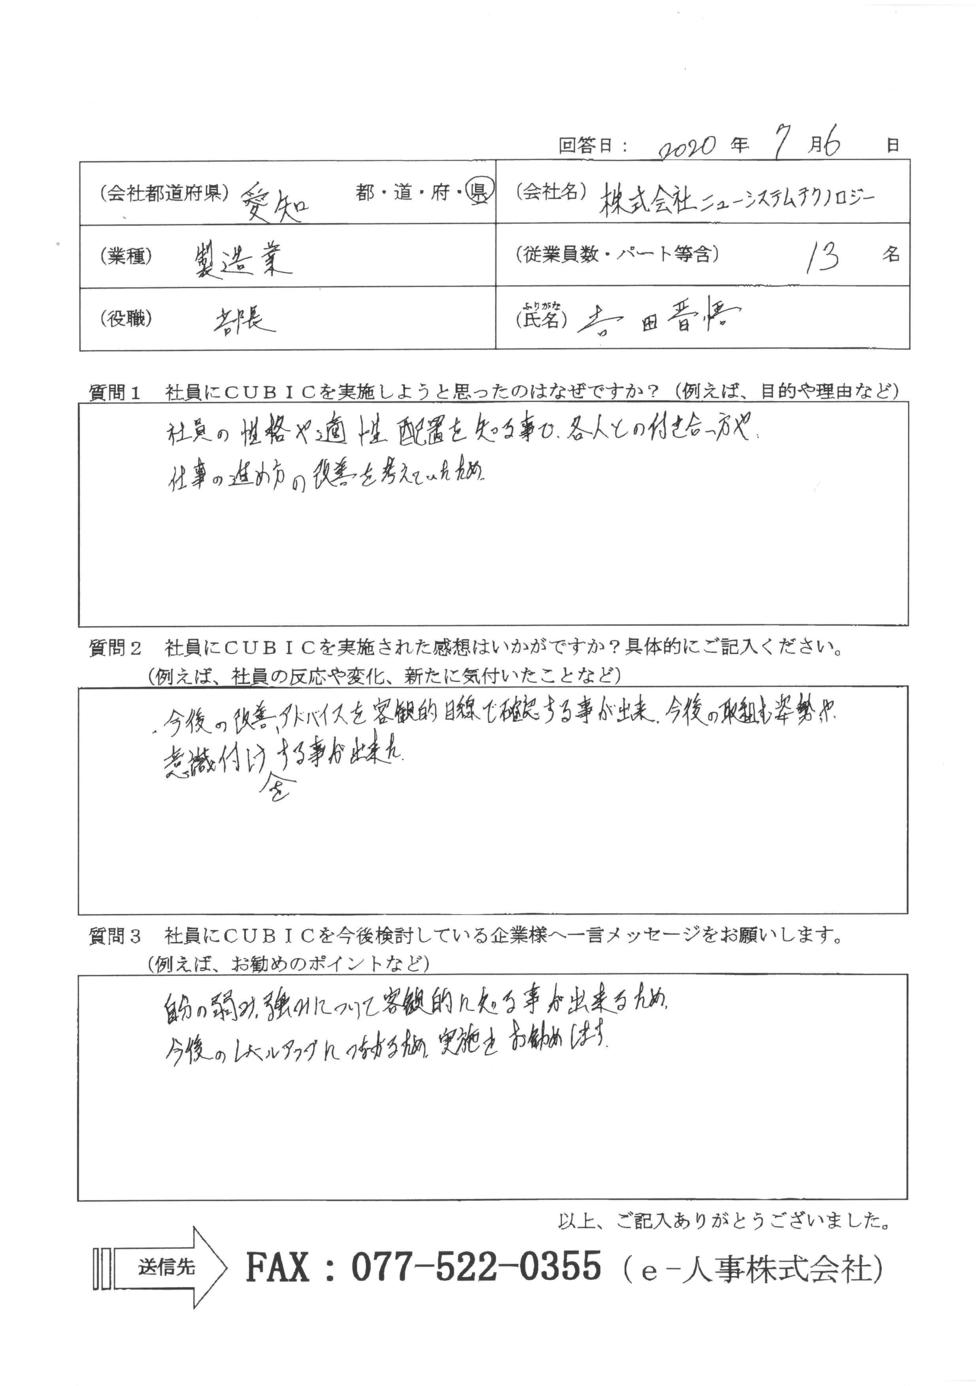 回答日： 2020 年 7 月 6 日
（会社都道府県） 愛知 都・道・府・県 （会社名） 株式会社ニューシステムテクノロジー
（業種） 製造業 （従業員数・パート等含） 13 名
（役職） 部長 （氏名） 吉田晋悟
ふりがな
質問１ 社員にＣＵＢＩＣを実施しようと思ったのはなぜですか？（例えば、目的や理由など）
社員の性格や適性配置を知る事で、各人との付き合い方や、
仕事の進め方の改善を考えていたため。
質問２ 社員にＣＵＢＩＣを実施された感想はいかがですか？具体的にご記入ください。
（例えば、社員の反応や変化、新たに気付いたことなど）
今後の改善、アドバイスを客観的目線で確認する事が出来、今後の取組む姿勢や、
意識付けをする事が出来た。
質問３ 社員にＣＵＢＩＣを今後検討している企業様へ一言メッセージをお願いします。
（例えば、お勧めのポイントなど）
自分の弱み、強みについて客観的に知る事が出来るため、
今後のレベルアップにつながるため、実施をお勧めします。
以上、ご記入ありがとうございました。
送信先 FAX：077-522-0355（ｅ-人事株式会社）